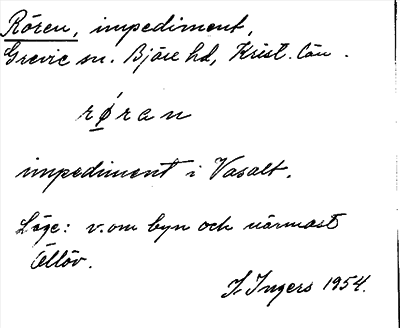 Rören, impediment,
Grevie sn. Bjäre hd, Krist. län.
rǿran
impediment i Vasalt.
Läge: v. om byn och närmast
Ällöv.
I. Ingers 1954.